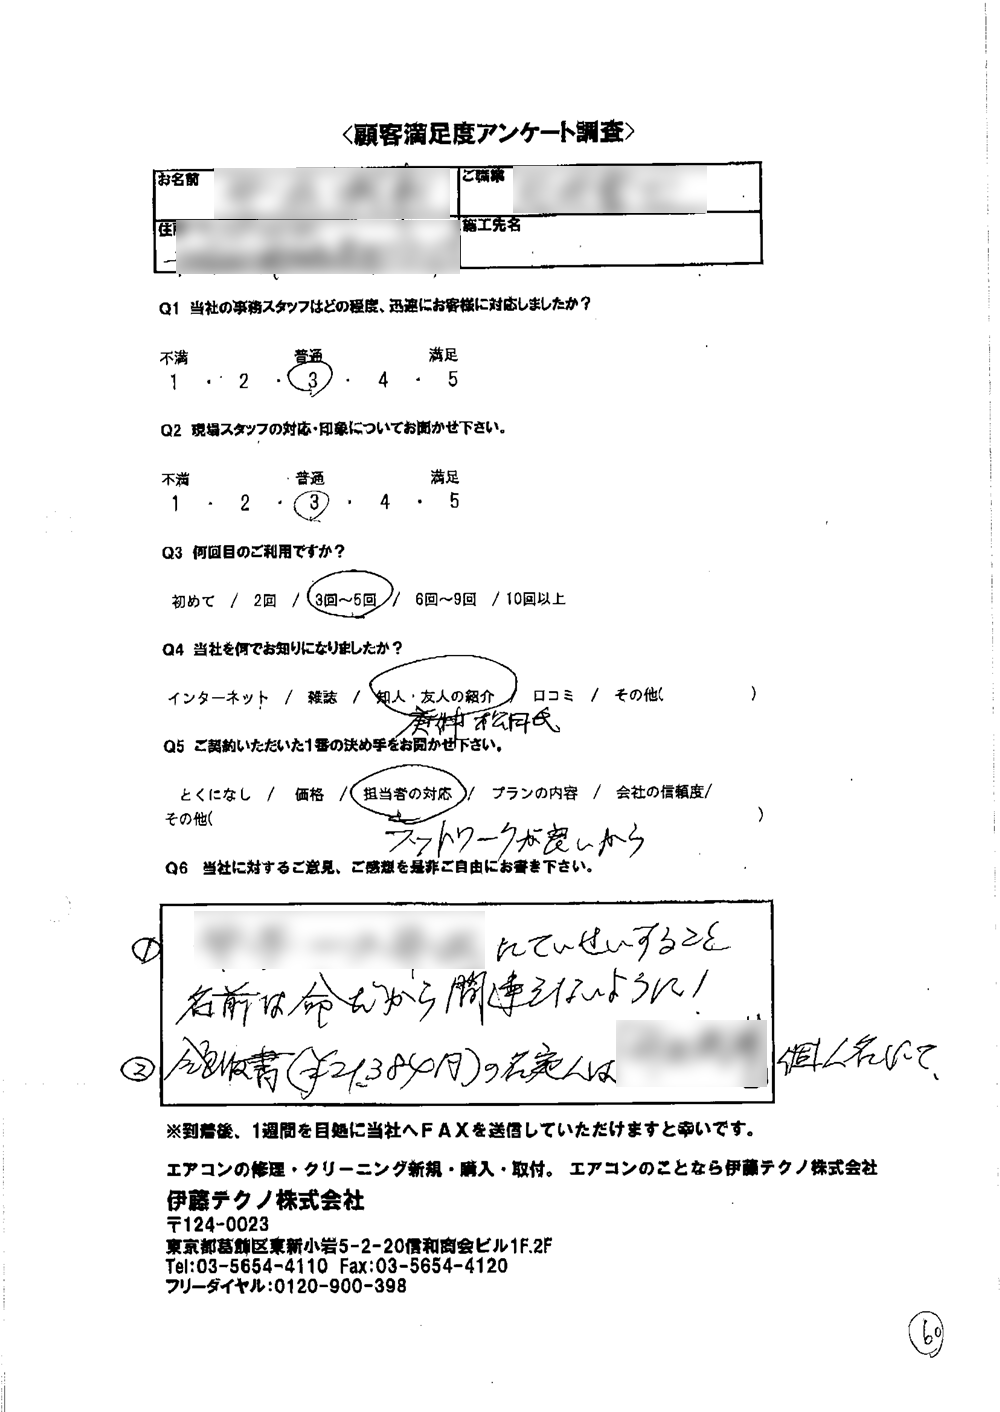 〈顧客満足度アンケート調査〉
お名前
ご職業
住
施工先名
Q1 当社の事務スタッフはどの程度、迅速にお客様に対応しましたか?
不満 普通 満足
1 ・ 2 ・ 3 ・ 4 ・ 5
Q2 現場スタッフの対応・印象についてお聞かせ下さい。
不満 普通 満足
1 ・ 2 ・ 3 ・ 4 ・ 5
Q3 何回目のご利用ですか?
初めて / 2回 / 3回〜5回 / 6回〜9回 / 10回以上
Q4 当社を何でお知りになりましたか?
インターネット / 雑誌 / 知人・友人の紹介 / 口コミ / その他( )
松田氏
Q5 ご契約いただいた1番の決め手をお聞かせ下さい。
とくになし / 価格 / 担当者の対応 / プランの内容 / 会社の信頼度/
その他( )
フットワークが良いから
Q6 当社に対するご意見、ご感想を是非ご自由にお書き下さい。
① にていせいすること
名前は命だから間違えないように!
② 領収書(¥21,384円)の名宛人は 個人名にて、
※到着後、1週間を目処に当社へFAXを送信していただけますと幸いです。
エアコンの修理・クリーニング新規・購入・取付。 エアコンのことなら伊藤テクノ株式会社
伊藤テクノ株式会社
〒124-0023
東京都葛飾区東新小岩5-2-20信和商会ビル1F.2F
Tel:03-5654-4110 Fax:03-5654-4120
フリーダイヤル:0120-900-398
60